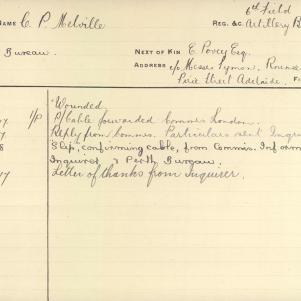 NAME C. P. Melville
6th Field
REG. &C. Artillery B
Bureau.
NEXT OF KIN E Povey Esq.
ADDRESS c/o Messrs Symon, Rounse
Pirie Street Adelaide. F
Wounded.
7 1/p P/Cable forwarded Commrs London.
7 Reply from Commrs. Particulars sent Inq
8 Slip, confirming cable, from Commis. Inform
Inquirer & Perth Bureau.
7 Letter of thanks from Inquirer.